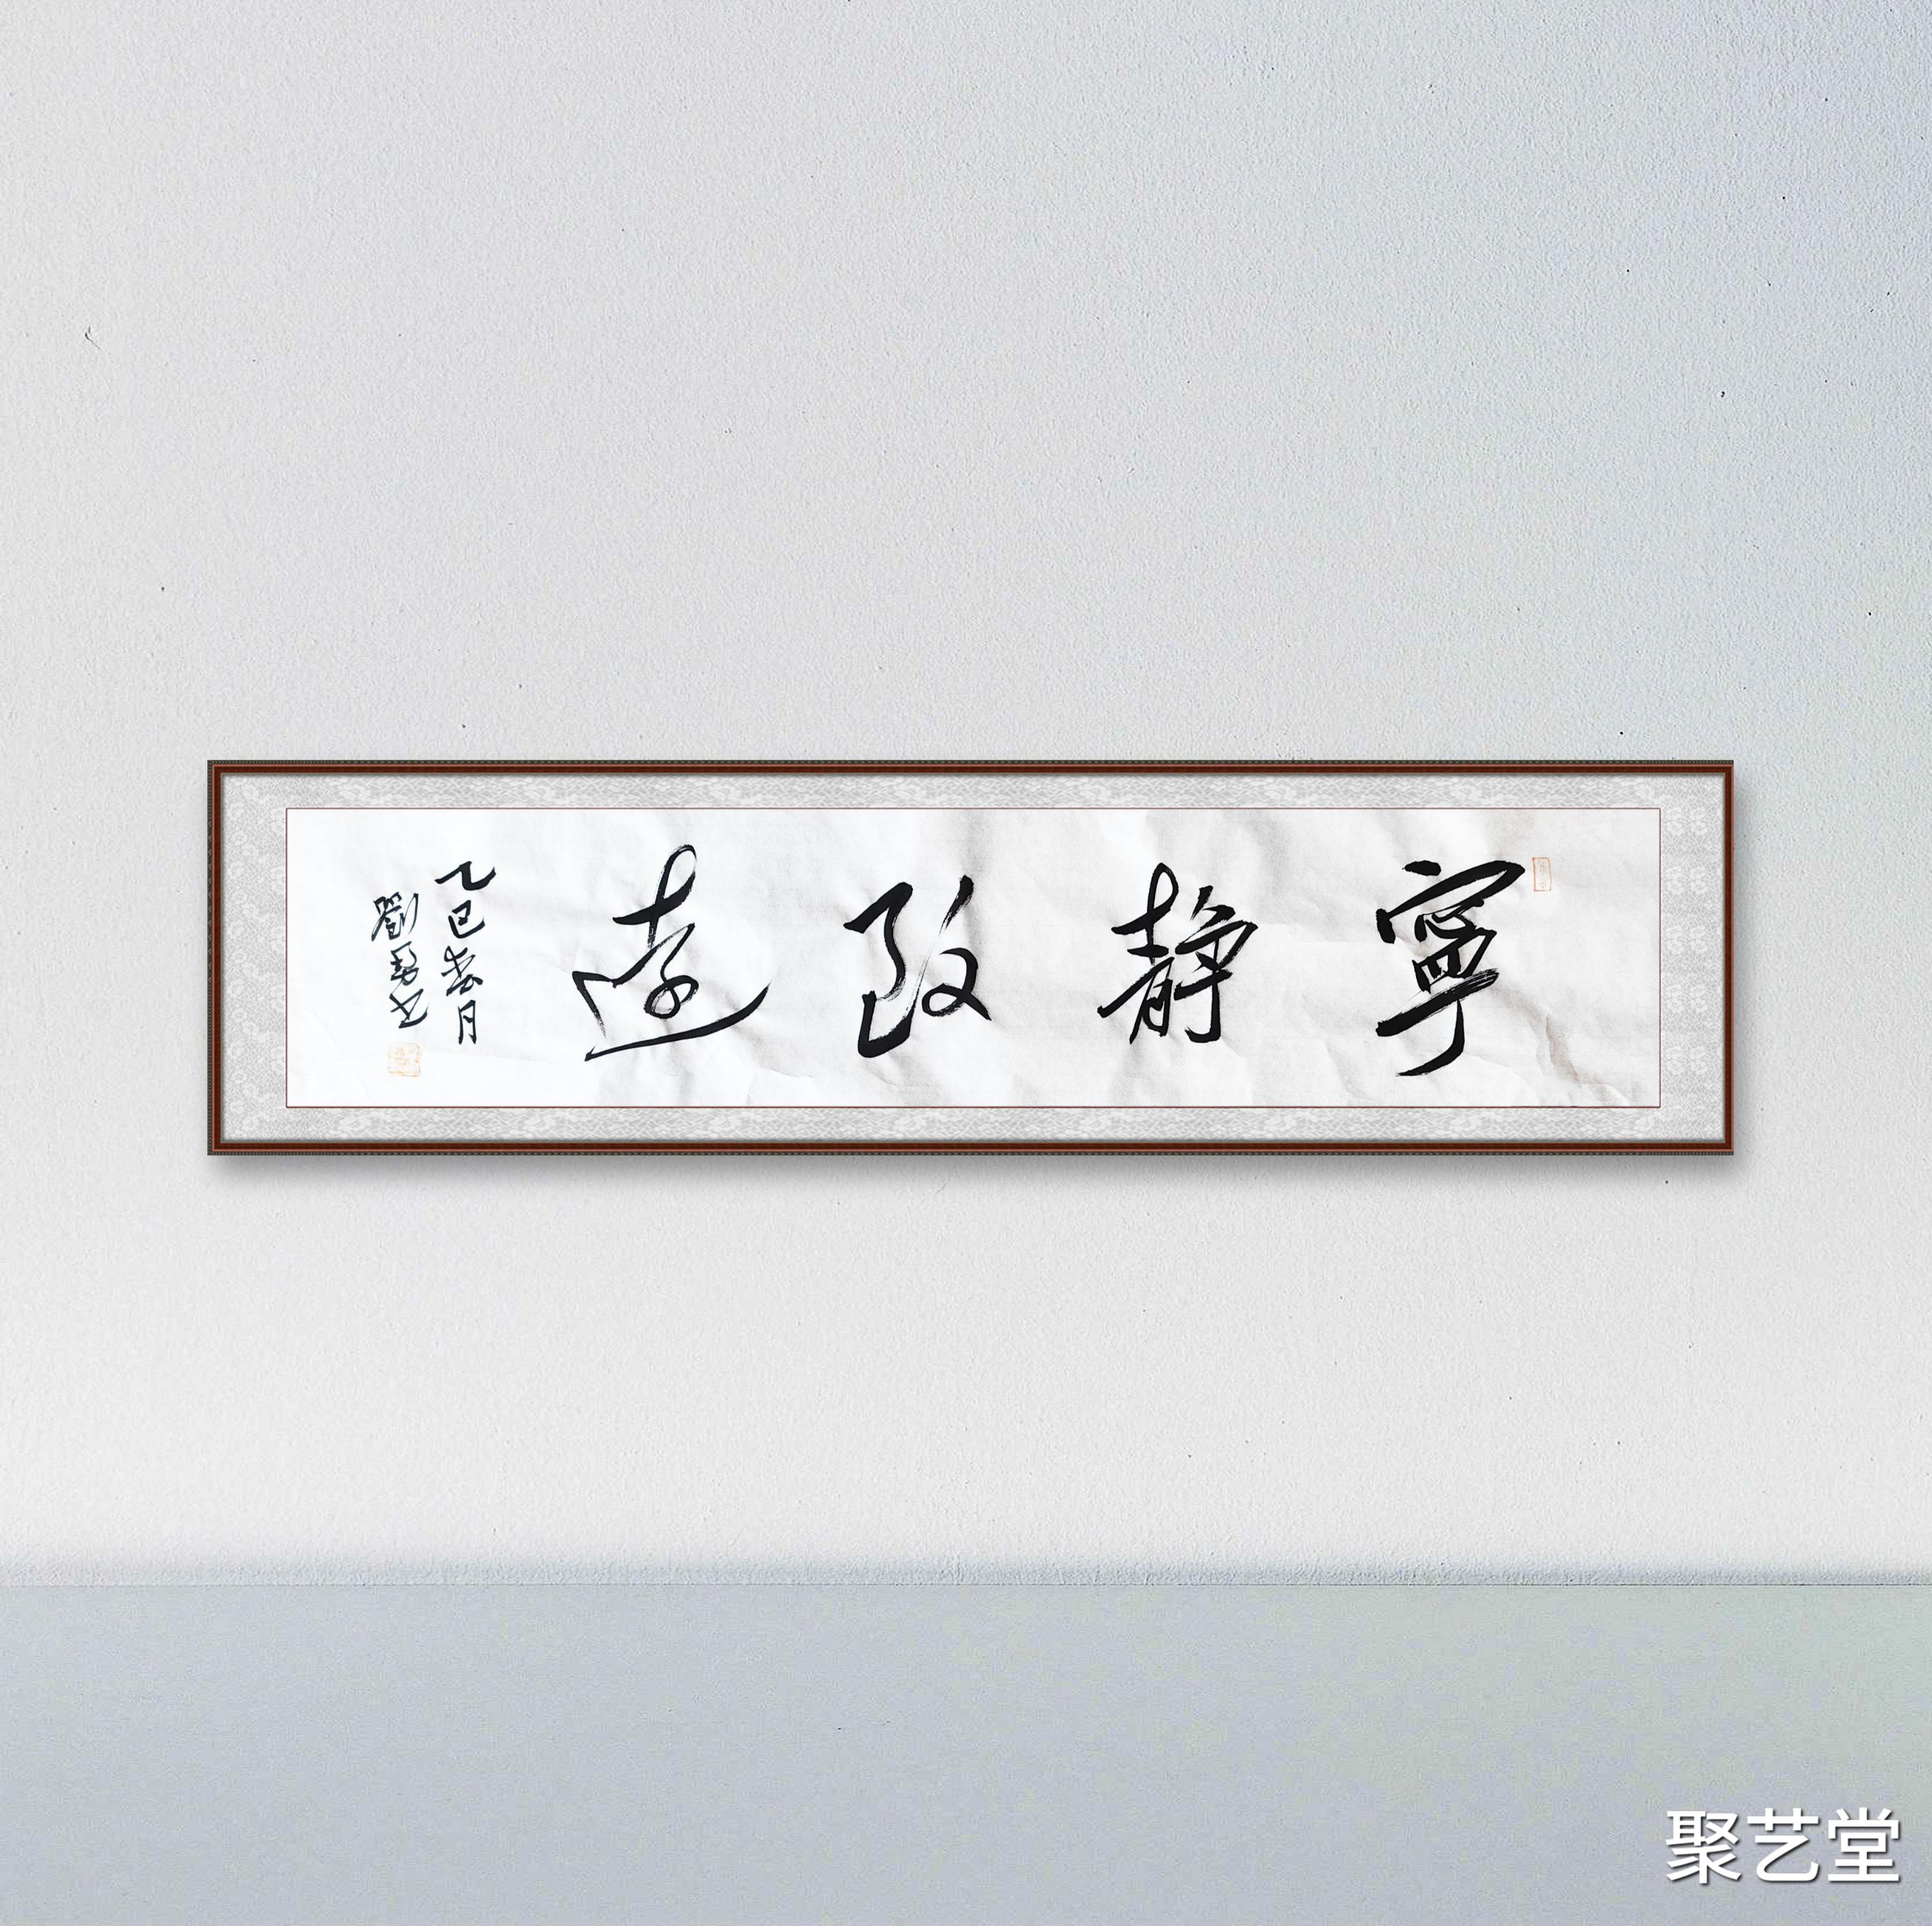 寧静致遠
乙巳春月
劉
聚艺堂